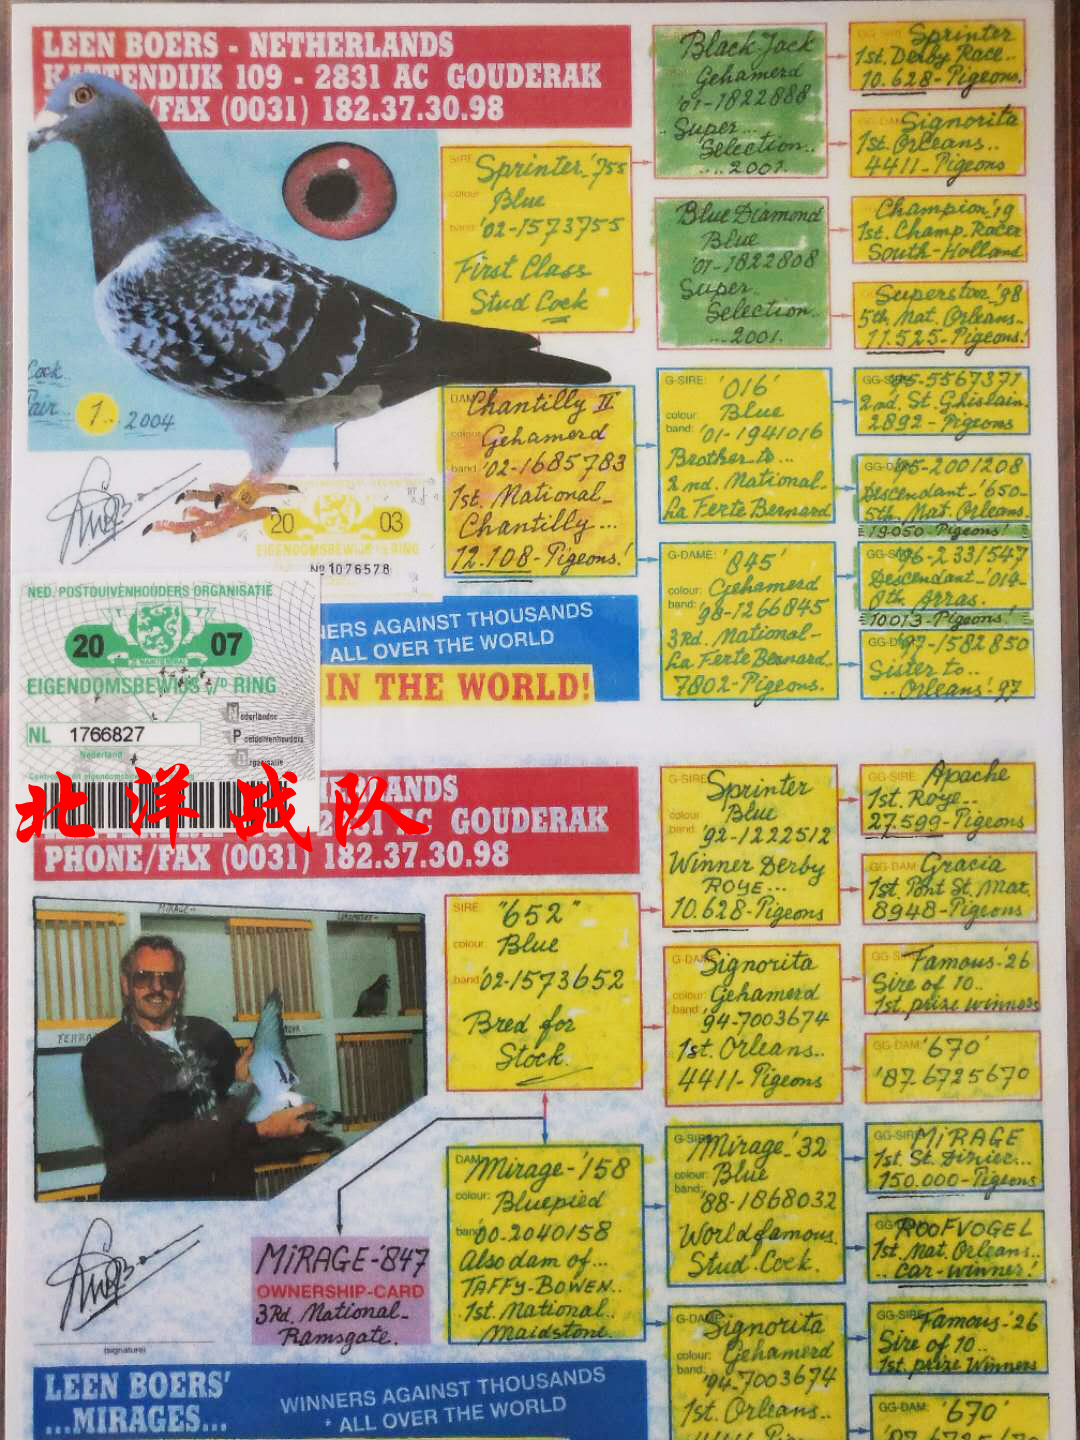 LEEN BOERS - NETHERLANDS
KATTENDIJK 109 - 2831 AC GOUDERAK
/FAX (0031) 182.37.30.98
SIRE
Sprinter '755
colour
Blue
band
'02-1573755
First Class
Stud Cock
Black-Jack
Gehamerd
'01-1822888
Super...
Selection..
...2001.
Blue Diamond
Blue
'01-1822808
Super..
Selection..
...2001..
GG-SIRE
Sprinter
1st. Derby Race..
10.628-Pigeons!
GG-DAM
Signorita
1st. Orleans..
4411-Pigeons
Champion '19
1st. Champ. Racer
South-Holland
Superstar '98
5th. Nat. Orleans..
11.525-Pigeons!
Cock..
Pair..
1..
2004
DAM
Chantilly II
colour
Gehamerd
band
'02-1685783
1st. National-
Chantilly...
12.108-Pigeons!
G-SIRE:
'016'
colour:
Blue
band:
'01-1941016
Brother to...
2nd. National-
La Ferte Bernard
G-DAME:
'845'
colour:
Gehamerd
band:
'98-1266845
3Rd. National-
La Ferte Bernard..
7802-Pigeons.
'95-5567371
2nd. St. Ghislain.
2892-Pigeons
'95-2001208
Descendant-'650-
5th. Nat. Orleans.
19.050-Pigeons!
'96-2331547
Descendant-'019-
8th. Arras.
10.013-Pigeons!
'97-1582850
Sister to..
..Orleans '97
20 03
EIGENDOMSBEWIJS V/D RING
No 1076578
NED. POSTDUIVENHOUDERS ORGANISATIE
20 07
EIGENDOMSBEWIJS V/D RING
NL 1766827
Nederland
Nederlandse
Postduivenhouders
Organisatie
NERS AGAINST THOUSANDS
ALL OVER THE WORLD
IN THE WORLD!
北洋战队
RLANDS
2831 AC GOUDERAK
PHONE/FAX (0031) 182.37.30.98
SIRE
"652"
colour:
Blue
band
'02-1573652
Bred for
Stock.
G-SIRE:
Sprinter
colour
Blue
band
'92-1222512
Winner Derby
ROYE...
10.628-Pigeons
G-DAME
Signorita
colour:
Gehamerd
band:
'94-7003674
1st. Orleans..
4411-Pigeons
GG-SIRE
Apache
1st. Roye..
27.599-Pigeons
GG-DAM
Gracia
1st. Pont St. Max.
8948-Pigeons
Famous-'26
Sire of 10..
1st. prize winners
GG-DAM:
'670'
'87-6725670
DAM
Mirage-'158
colour:
Bluepied
band
'00-2040158
Also dam of...
TAFFY-BOWEN..
1st. National..
Maidstone.
G-SIRE
Mirage-'32
colour:
Blue
band:
'88-1868032
World famous.
Stud. Cock.
G-DAME
Signorita
colour:
Gehamerd
band:
'94-7003674
1st. Orleans..
GG-SIRE
MiRAGE
1st St. Dizier...
150.000-Pigeons
ROOFVOGEL
1st. Nat. Orleans..
..car-winner!
GG-SIRE
Famous-'26
Sire of 10..
1st. prize Winners
GG-DAM:
'670'
MiRAGE-'847
OWNERSHIP-CARD
3Rd. National-
Ramsgate.
(signature)
LEEN BOERS'
...MIRAGES...
WINNERS AGAINST THOUSANDS
* ALL OVER THE WORLD